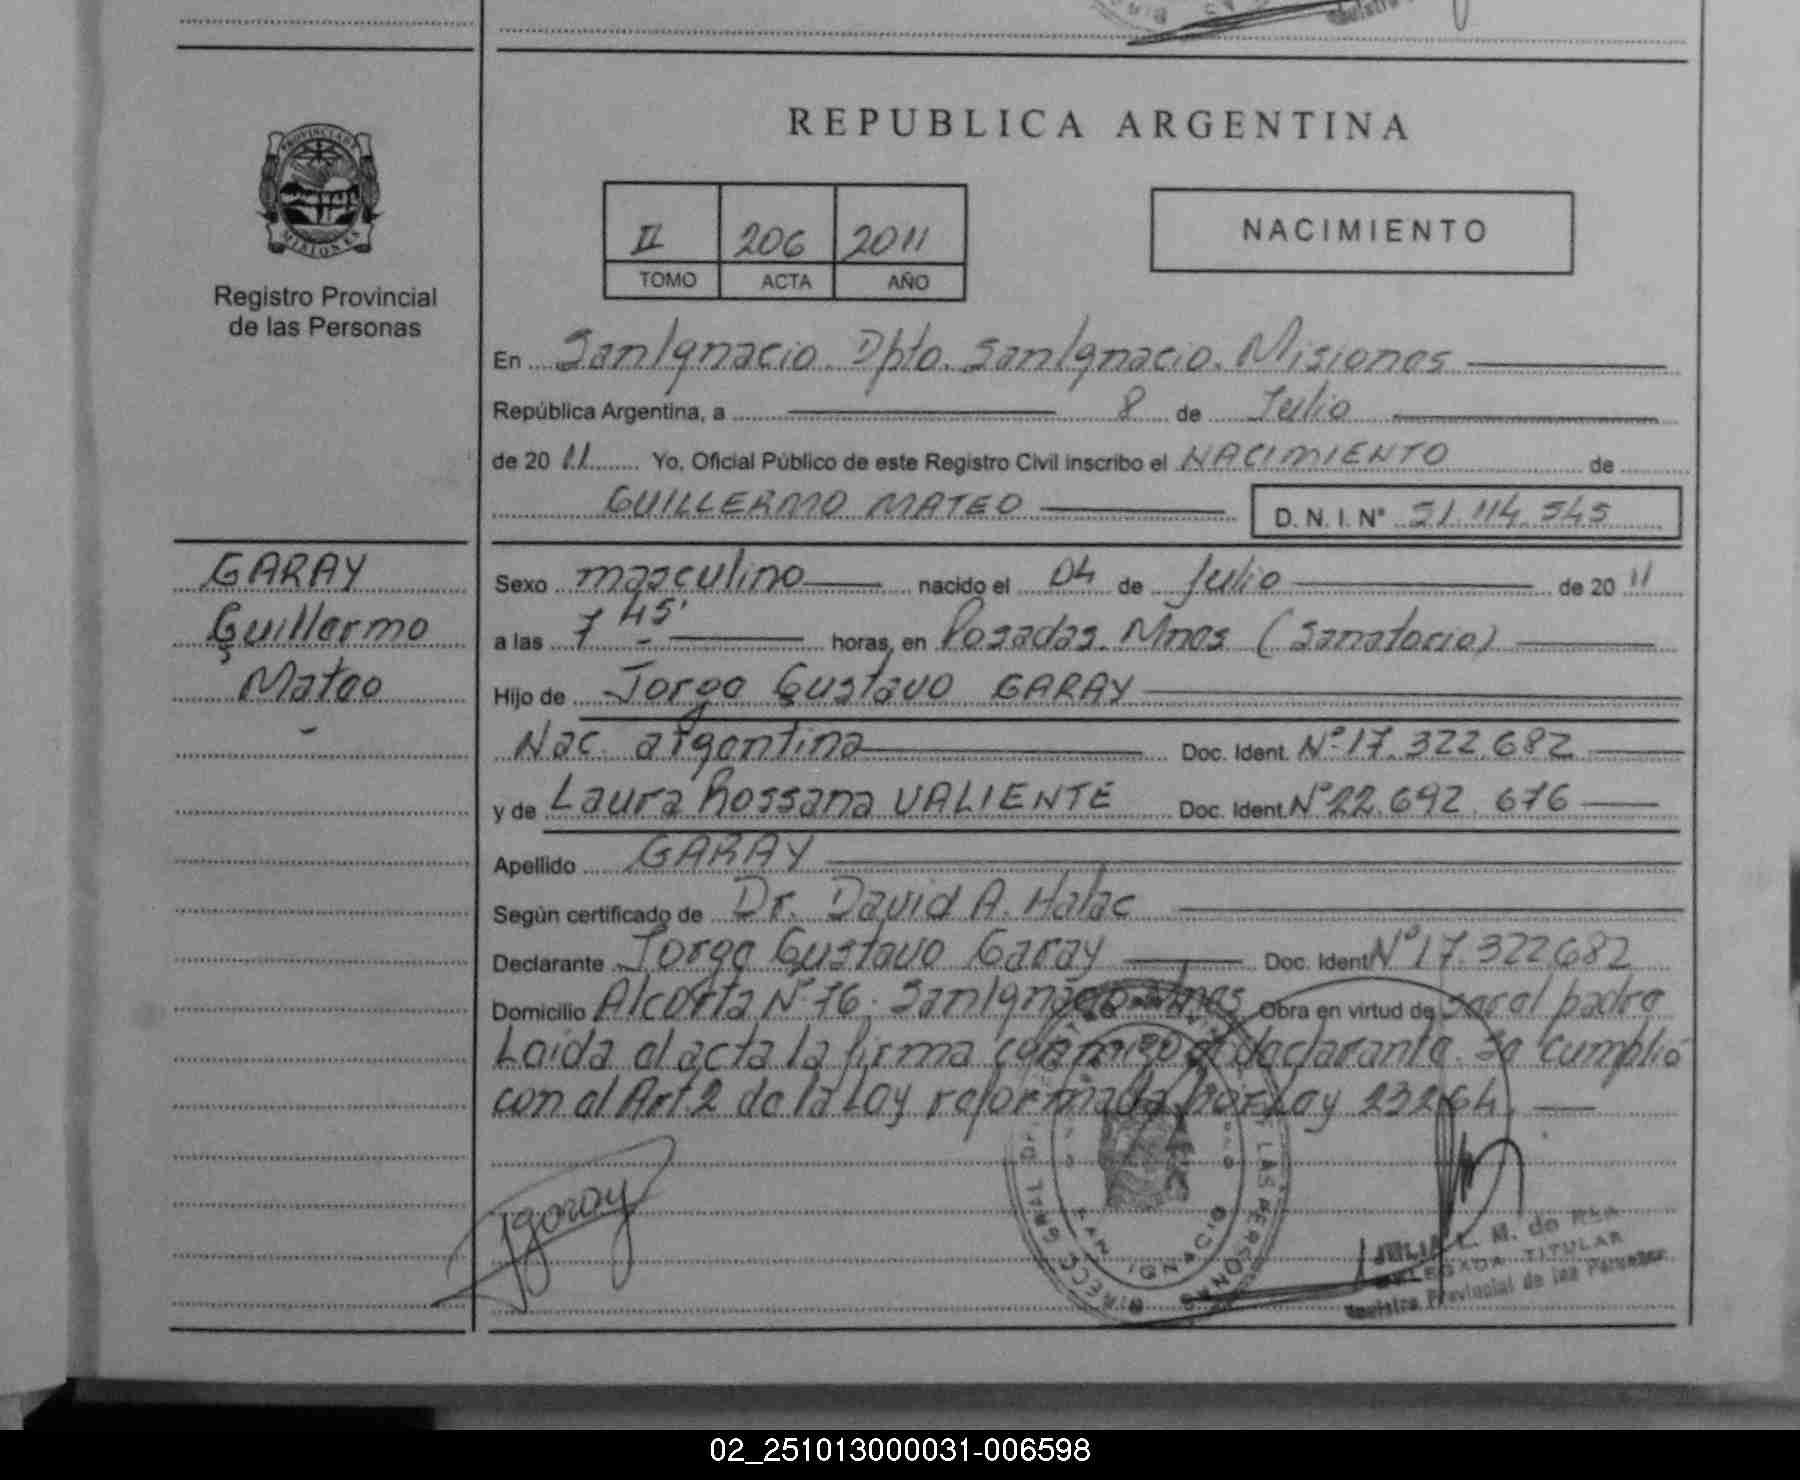 REPUBLICA ARGENTINA
PROVINCIA DE
MISIONES
Registro Provincial
de las Personas
NACIMIENTO
II 206 2011
TOMO ACTA AÑO
En San Ignacio. Dpto. San Ignacio. Misiones
República Argentina, a 8 de Julio
de 20 11 Yo, Oficial Público de este Registro Civil inscribo el NACIMIENTO de
GUILLERMO MATEO D. N. I. N° 51.114.545
GARAY
Guillermo
Mateo
Sexo masculino nacido el 04 de Julio de 20 11
a las 7 45' horas, en Posadas. Mnes (Sanatorio)
Hijo de Jorge Gustavo GARAY
Nac. argentina Doc. Ident. N° 17.322.682
y de Laura Rossana VALIENTE Doc. Ident. N° 22.692.676
Apellido GARAY
Según certificado de Dr. David A. Halac
Declarante Jorge Gustavo Garay Doc. Ident N° 17.322.682
Domicilio Alcorta N° 76. San Ignacio Mnes Obra en virtud de ser el padre
Leida el acta la firma conmigo el declarante. Se cumplió
con el Art 2 de la Ley reformada por Ley 23264.
JGaray
SAN IGNACIO
LAS PERSONAS
JULIA L. M. de
DELEGADA TITULAR
Registro Provincial de las Personas
02_251013000031-006598